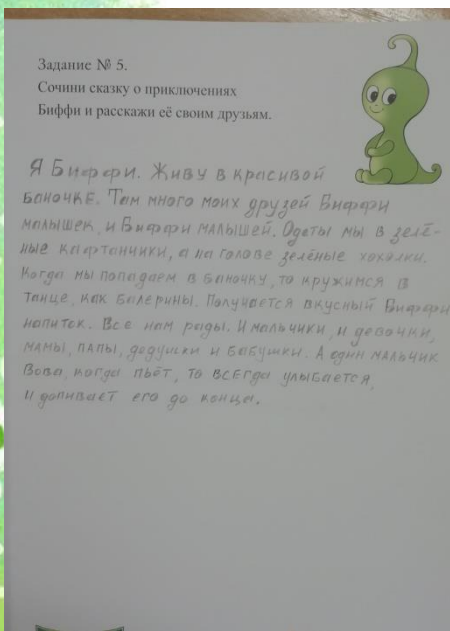 Задание № 5.
Сочини сказку о приключениях
Биффи и расскажи её своим друзьям.
Я Биффи. Живу в красивой
баночке. Там много моих друзей Биффи
малышек, и Биффи малышей. Одеты мы в зелё-
ные кафтанчики, а на голове зелёные хохолки.
Когда мы попадаем в баночку, то кружимся в
танце, как балерины. Получается вкусный Биффи
напиток. Все нам рады. И мальчики, и девочки,
мамы, папы, дедушки и бабушки. А один мальчик
Вова, когда пьёт, то всегда улыбается,
и допивает его до конца.